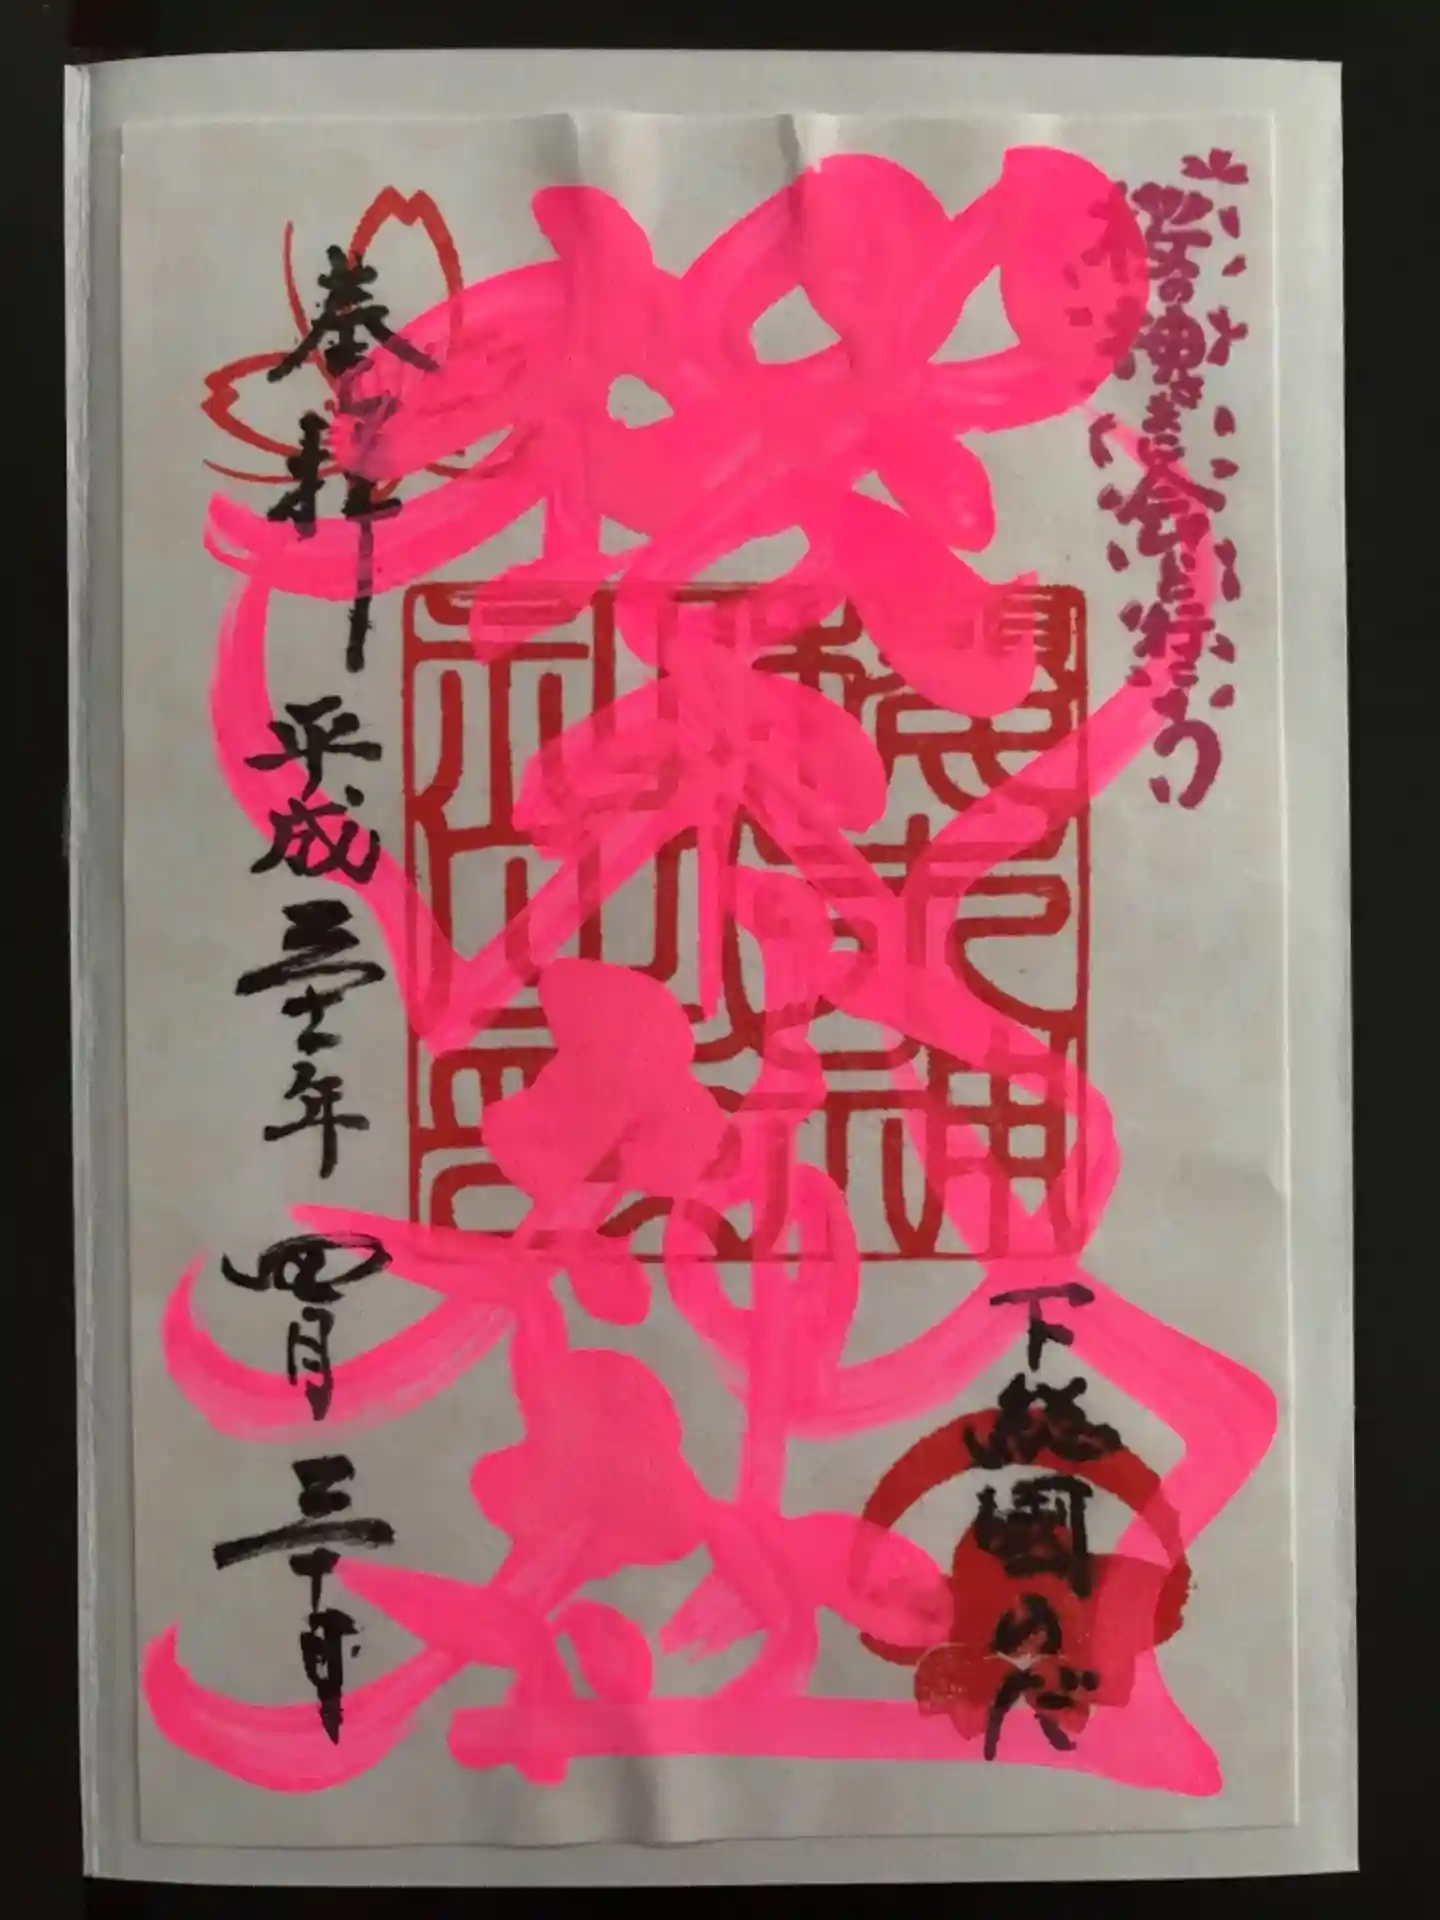 桜の神さまに会いに行こう
下総国のだ
櫻木神社
奉拝
平成三十一年四月三十日